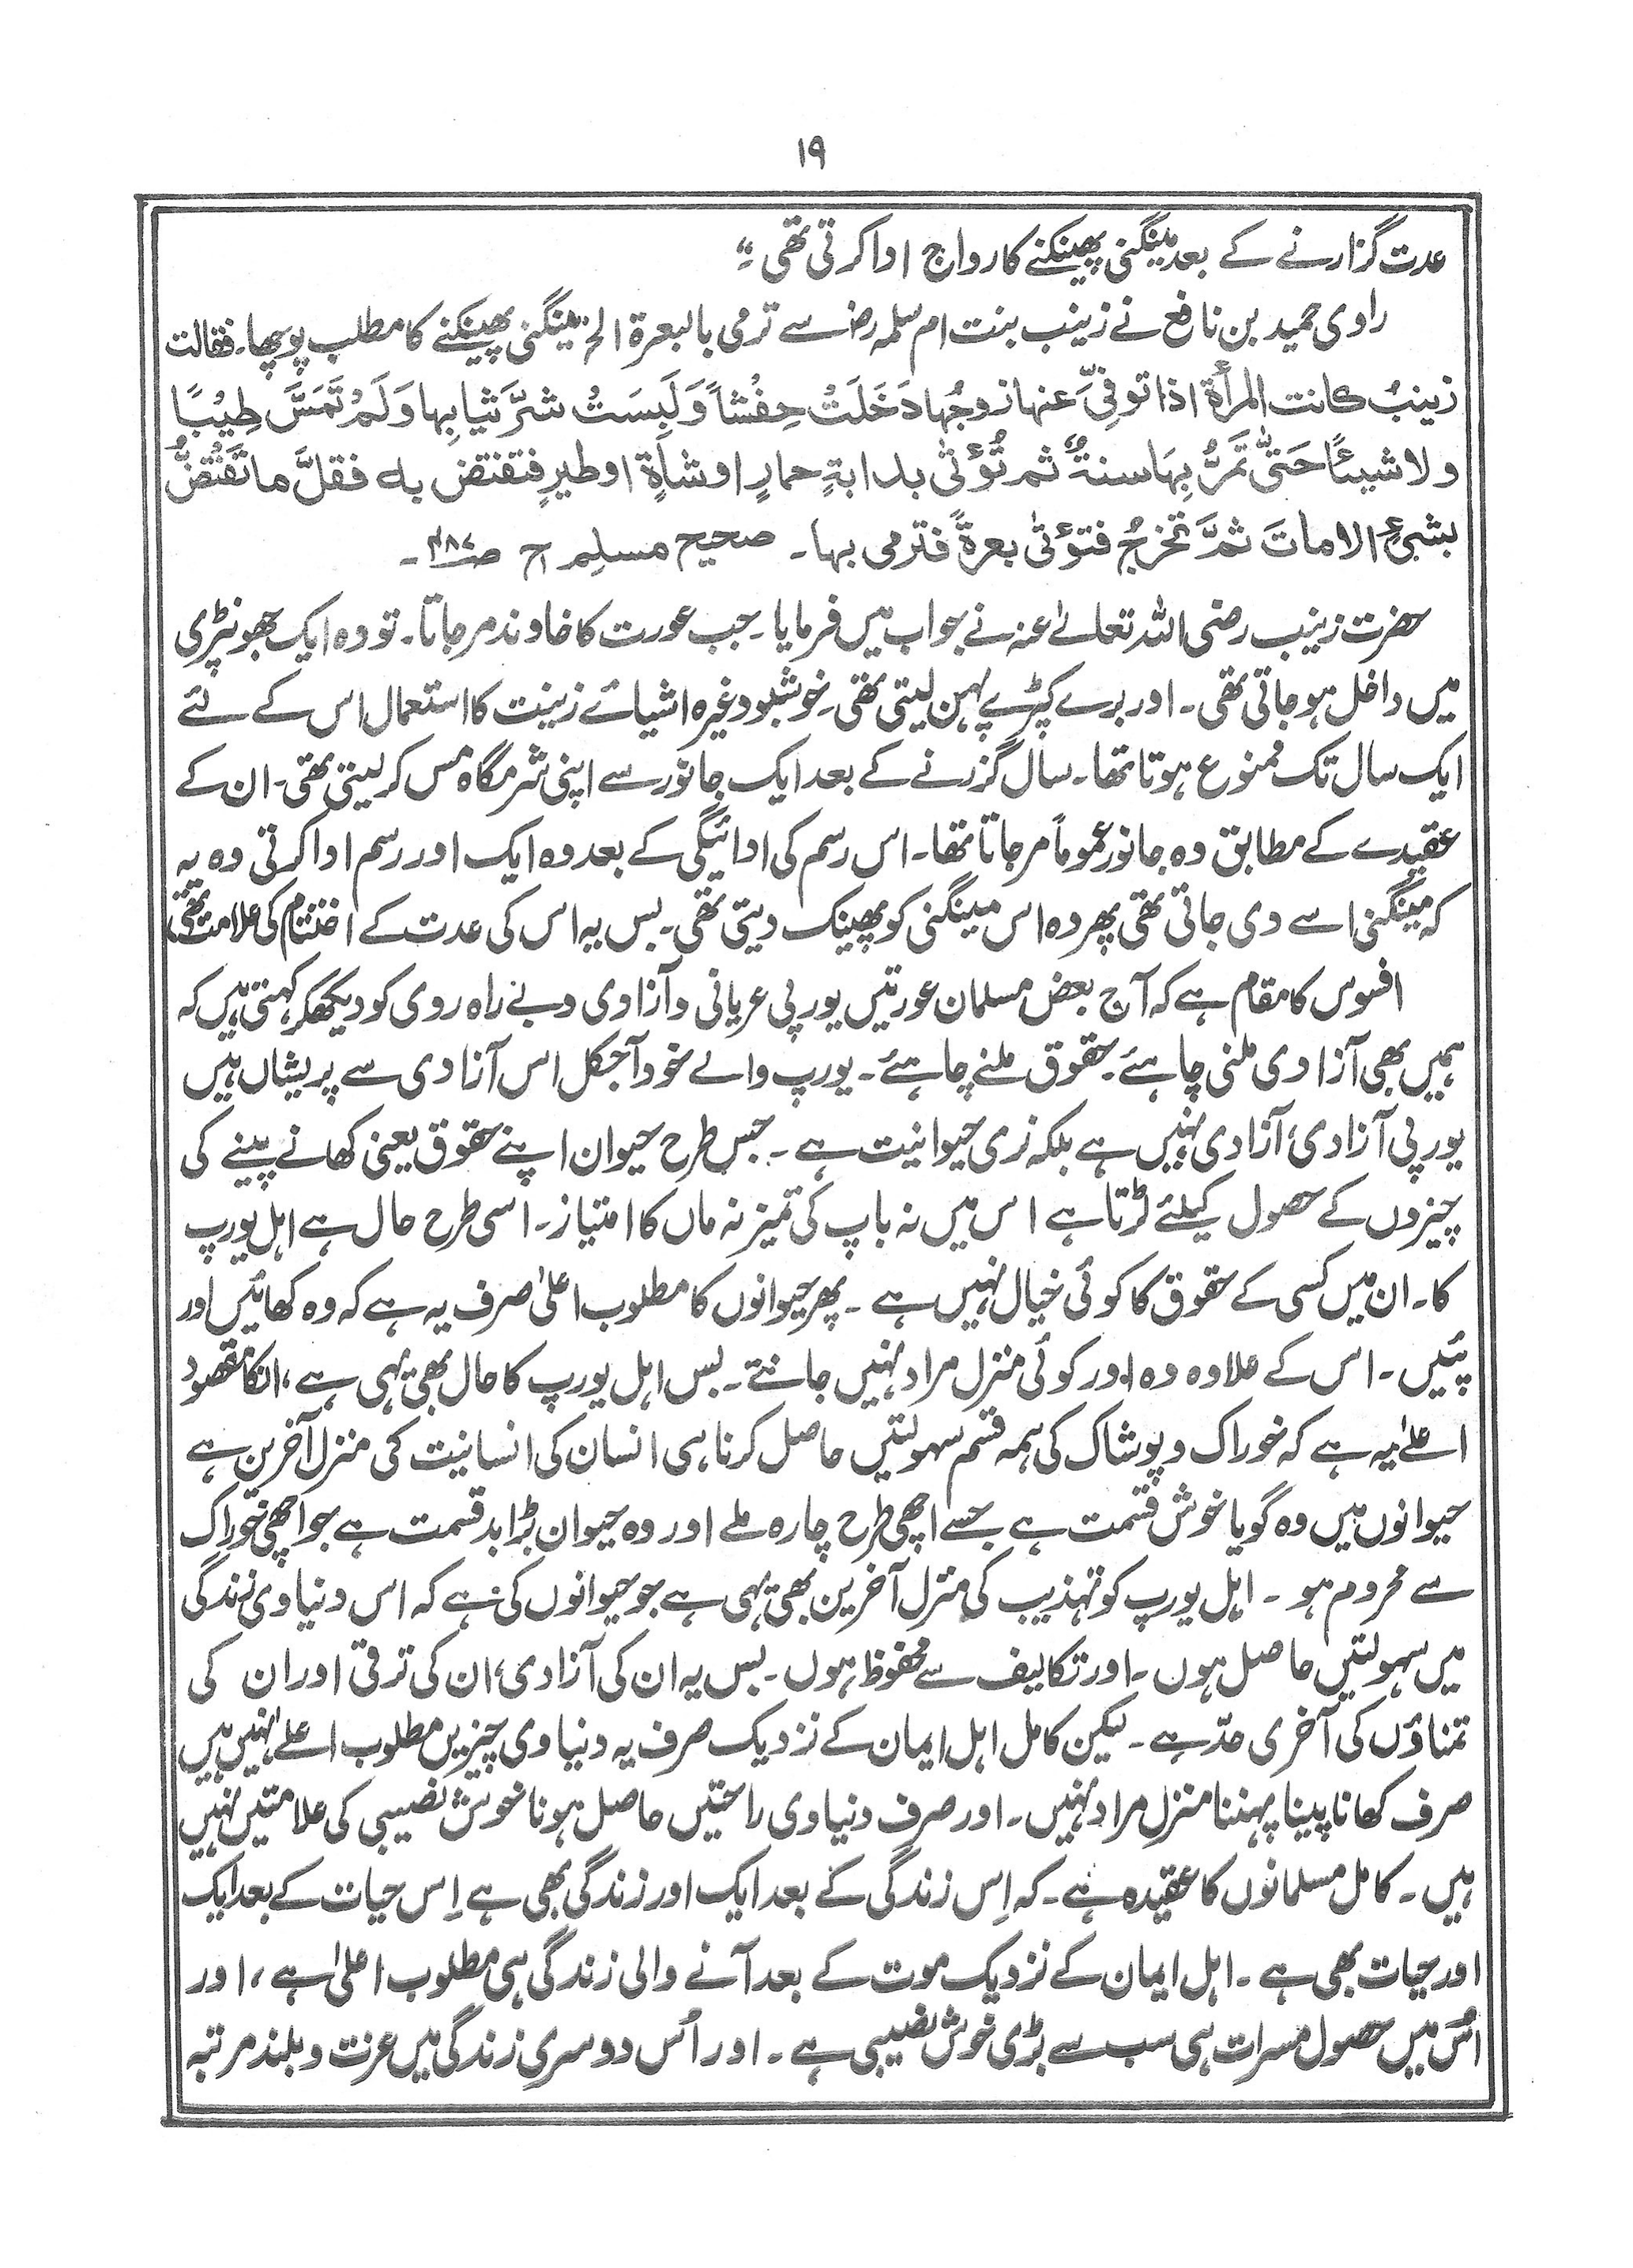 ۱۹
عدت گزارنے کے بعد مینگنی پھینکنے کا رواج ادا کرتی تھی۔“
راوی حمید بن نافع نے زینب بنت ام سلمہ رضؓ سے ترمی بالبعرۃ الخ مینگنی پھینکنے کا مطلب پوچھا۔ فقالت
زینبُ کانت المرأۃ اذا توفِّیَ عنہا زوجُہا دَخَلَتْ حِفْشاً وَلَبِسَتْ شَرَّ ثیابِہا وَلَمْ تَمَسَّ طِیْبًا
ولا شیئًا حَتّٰی تَمَرُّ بِہَا سنۃٌ ثم تُؤتٰی بدابۃٍ حمارٍ او شاۃٍ او طیرٍ فتفتض بہ فقلَّ ما تَفْتَضُّ
بشئٍ الامات ثمَّ تخرجُ فتؤتٰی بعرۃً فترمی بہا۔ صحیح مسلم ج۱ ص۴۸۷۔
حضرت زینب رضی اللہ تعالےٰ عنہ نے جواب میں فرمایا۔ جب عورت کا خاوند مر جاتا۔ تو وہ ایک جھونپڑی
میں داخل ہو جاتی تھی۔ اور برے کپڑے پہن لیتی تھی۔ خوشبو وغیرہ اشیائے زینت کا استعمال اس کے لئے
ایک سال تک ممنوع ہوتا تھا۔ سال گزرنے کے بعد ایک جانور سے اپنی شرمگاہ مس کر لیتی تھی۔ ان کے
عقیدے کے مطابق وہ جانور عموماً مر جاتا تھا۔ اس رسم کی ادائیگی کے بعد وہ ایک اور رسم ادا کرتی وہ یہ
کہ مینگنی اسے دی جاتی تھی پھر وہ اس مینگنی کو پھینک دیتی تھی۔ بس یہ اس کی عدت کے اختتام کی علامت تھی
افسوس کا مقام ہے کہ آج بعض مسلمان عورتیں یورپی عریانی و آزادی و بے راہ روی کو دیکھکر کہتی ہیں کہ
ہمیں بھی آزادی ملنی چاہئے۔ حقوق ملنے چاہئے۔ یورپ والے خود آجکل اس آزادی سے پریشاں ہیں
یورپی آزادی، آزادی نہیں ہے بلکہ نری حیوانیت ہے۔ جس طرح حیوان اپنے حقوق یعنی کھانے پینے کی
چیزوں کے حصول کیلئے لڑتا ہے اس میں نہ باپ کی تمیز نہ ماں کا امتیاز۔ اسی طرح حال ہے اہل یورپ
کا۔ ان میں کسی کے حقوق کا کوئی خیال نہیں ہے۔ پھر حیوانوں کا مطلوب اعلیٰ صرف یہ ہے کہ وہ کھائیں اور
پئیں۔ اس کے علاوہ وہ اور کوئی منزل مراد نہیں جانتے۔ بس اہل یورپ کا حال بھی یہی ہے، انکا مقصود
اعلےٰ یہ ہے کہ خوراک و پوشاک کی ہمہ قسم سہولتیں حاصل کرنا ہی انسان کی انسانیت کی منزل آخرین ہے
حیوانوں میں وہ گویا خوش قسمت ہے جسے اچھی طرح چارہ ملے اور وہ حیوان بڑا بدقسمت ہے جو اچھی خوراک
سے محروم ہو۔ اہل یورپ کو تہذیب کی منزل آخرین بھی یہی ہے جو حیوانوں کی ہے کہ اس دنیاوی زندگی
میں سہولتیں حاصل ہوں۔ اور تکالیف سے محفوظ ہوں۔ بس یہ ان کی آزادی، ان کی ترقی اور ان کی
تمناؤں کی آخری حدّ ہے۔ لیکن کامل اہل ایمان کے نزدیک صرف یہ دنیاوی چیزیں مطلوب اعلےٰ نہیں ہیں
صرف کھانا پینا پہننا منزل مراد نہیں۔ اور صرف دنیاوی راحتیں حاصل ہونا خوش نصیبی کی علامتیں نہیں
ہیں۔ کامل مسلمانوں کا عقیدہ ہے۔ کہ اِس زندگی کے بعد ایک اور زندگی بھی ہے اِس حیات کے بعد ایک
اور حیات بھی ہے۔ اہل ایمان کے نزدیک موت کے بعد آنے والی زندگی ہی مطلوب اعلیٰ ہے، اور
اُس میں حصول مسرات ہی سب سے بڑی خوش نصیبی ہے۔ اور اُس دوسری زندگی میں عزت و بلند مرتبہ